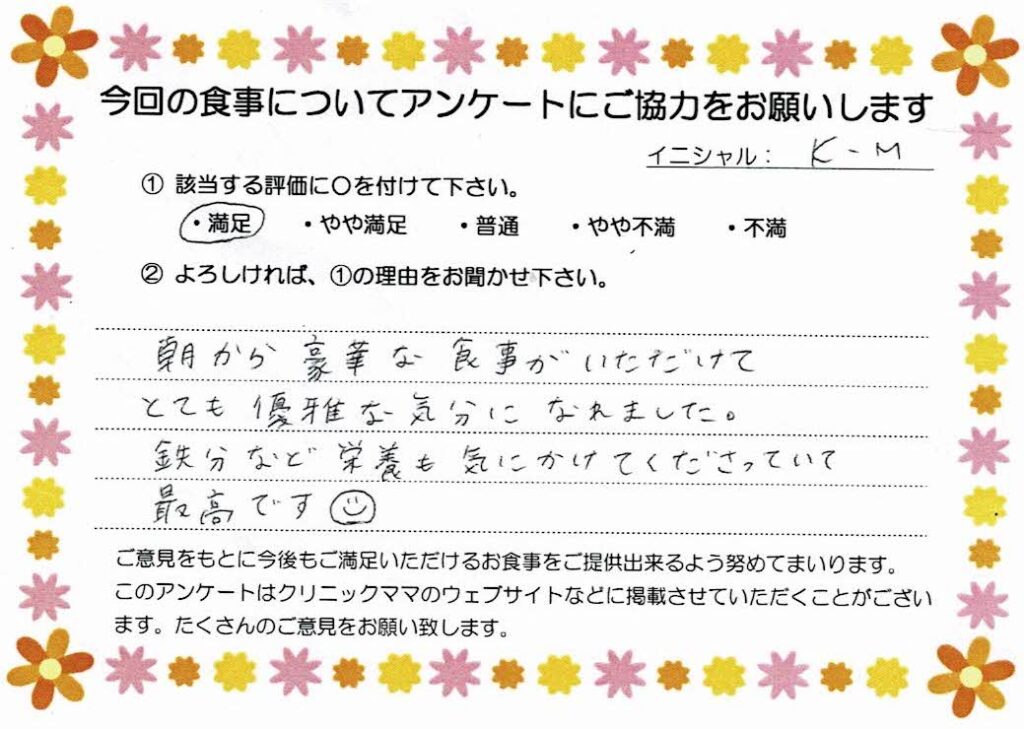 今回の食事についてアンケートにご協力をお願いします
イニシャル： K-M
① 該当する評価に〇を付けて下さい。
・満足 ・やや満足 ・普通 ・やや不満 ・不満
② よろしければ、①の理由をお聞かせ下さい。
朝から豪華な食事がいただけて
とても優雅な気分になれました。
鉄分など栄養も気にかけてくださっていて
最高です
ご意見をもとに今後もご満足いただけるお食事をご提供出来るよう努めてまいります。
このアンケートはクリニックママのウェブサイトなどに掲載させていただくことがござい
ます。たくさんのご意見をお願い致します。